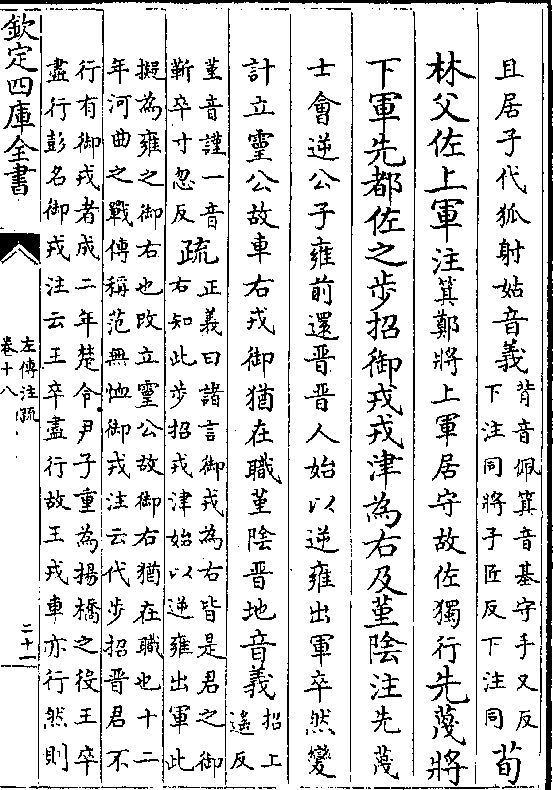 且居子代狐射姑音義背音佩箕音基守手又反
下注同將子匠反下注同荀
林父佐上軍注箕鄭將上軍居守故佐獨行先蔑將
下軍先都佐之步招御戎戎津為右及堇陰注先蔑
士會逆公子雍前還晉晉人始以逆雍出軍卒然變
計立靈公故車右戎御猶在職堇陰晉地音義招上
遙反
堇音謹一音
靳卒寸忽反疏正義曰諸言御戎為右皆是君之御
右知此步招戎津始以逆雍出軍此
擬為雍之御右也改立靈公故御右猶在職也十二
年河曲之戰傳稱范無恤御戎注云代步招晉君不
行有御戎者成二年楚令尹子重為揚橋之役王卒
盡行彭名御戎注云王卒盡行故王戎車亦行然則
欽定四庫全書
左傳注疏
卷十八
二十一